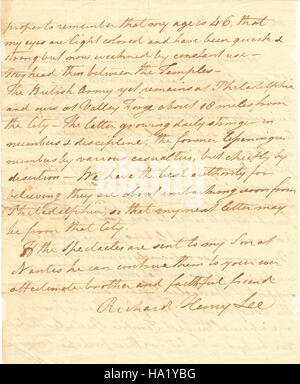 proper to remember that my age is 46, that
my eyes are light colored and have been quick &
strong but now weakened by constant use –
My head thin between the Temples –
The British Army yet remains at Philadelphia
and ours at Valley Forge about 18 miles from
the City – The latter growing daily stronger in
numbers & discipline; the former lessening in
numbers by various casualties, but chiefly by
desertion – We have the best authority for
believing they are about embarking soon from
Philadelphia, so that my next letter may
be from that City
If the spectacles are sent to my Son at
Nantes he can contrive them to your ever
affectionate brother and faithful friend
Richard Henry Lee
alamy
HA1YBG